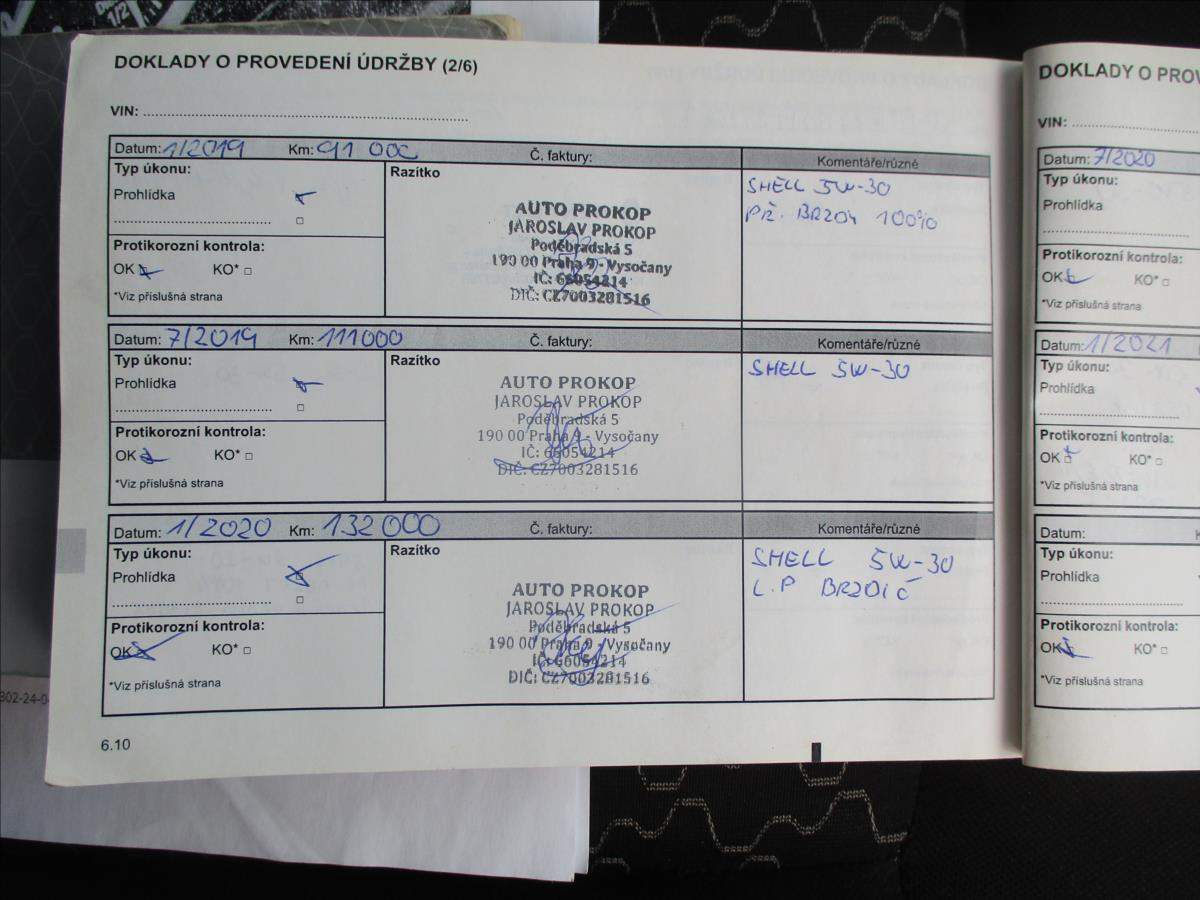 DOKLADY O PROVEDENÍ ÚDRŽBY (2/6)
VIN:
Datum: 1/2019 Km: 91 000 Č. faktury: Komentáře/různé
Typ úkonu:
Prohlídka
Razítko
AUTO PROKOP
JAROSLAV PROKOP
Poděbradská 5
190 00 Praha 9 - Vysočany
IČ: 66054214
DIČ: CZ7003281516
SHELL 5W-30
Př. BRZDY 100%
Protikorozní kontrola:
OK KO*
*Viz příslušná strana
Datum: 7/2019 Km: 111000 Č. faktury: Komentáře/různé
Typ úkonu:
Prohlídka
Razítko
AUTO PROKOP
JAROSLAV PROKOP
Poděbradská 5
190 00 Praha 9 - Vysočany
IČ: 66054214
DIČ: CZ7003281516
SHELL 5W-30
Protikorozní kontrola:
OK KO*
*Viz příslušná strana
Datum: 1/2020 Km: 132 000 Č. faktury: Komentáře/různé
Typ úkonu:
Prohlídka
Razítko
AUTO PROKOP
JAROSLAV PROKOP
Poděbradská 5
190 00 Praha 9 - Vysočany
IČ: 66054214
DIČ: CZ7003281516
SHELL 5W-30
L.P BRZDIČ
Protikorozní kontrola:
OK KO*
*Viz příslušná strana
6.10
DOKLADY O
VIN:
Datum: 7/2020
Typ úkonu:
Prohlídka
Protikorozní kontrola:
OK KO*
*Viz příslušná strana
Datum: 1/2021
Typ úkonu:
Prohlídka
Protikorozní kontrola:
OK KO*
*Viz příslušná strana
Datum:
Typ úkonu:
Prohlídka
Protikorozní kontrola:
OK KO*
*Viz příslušná strana